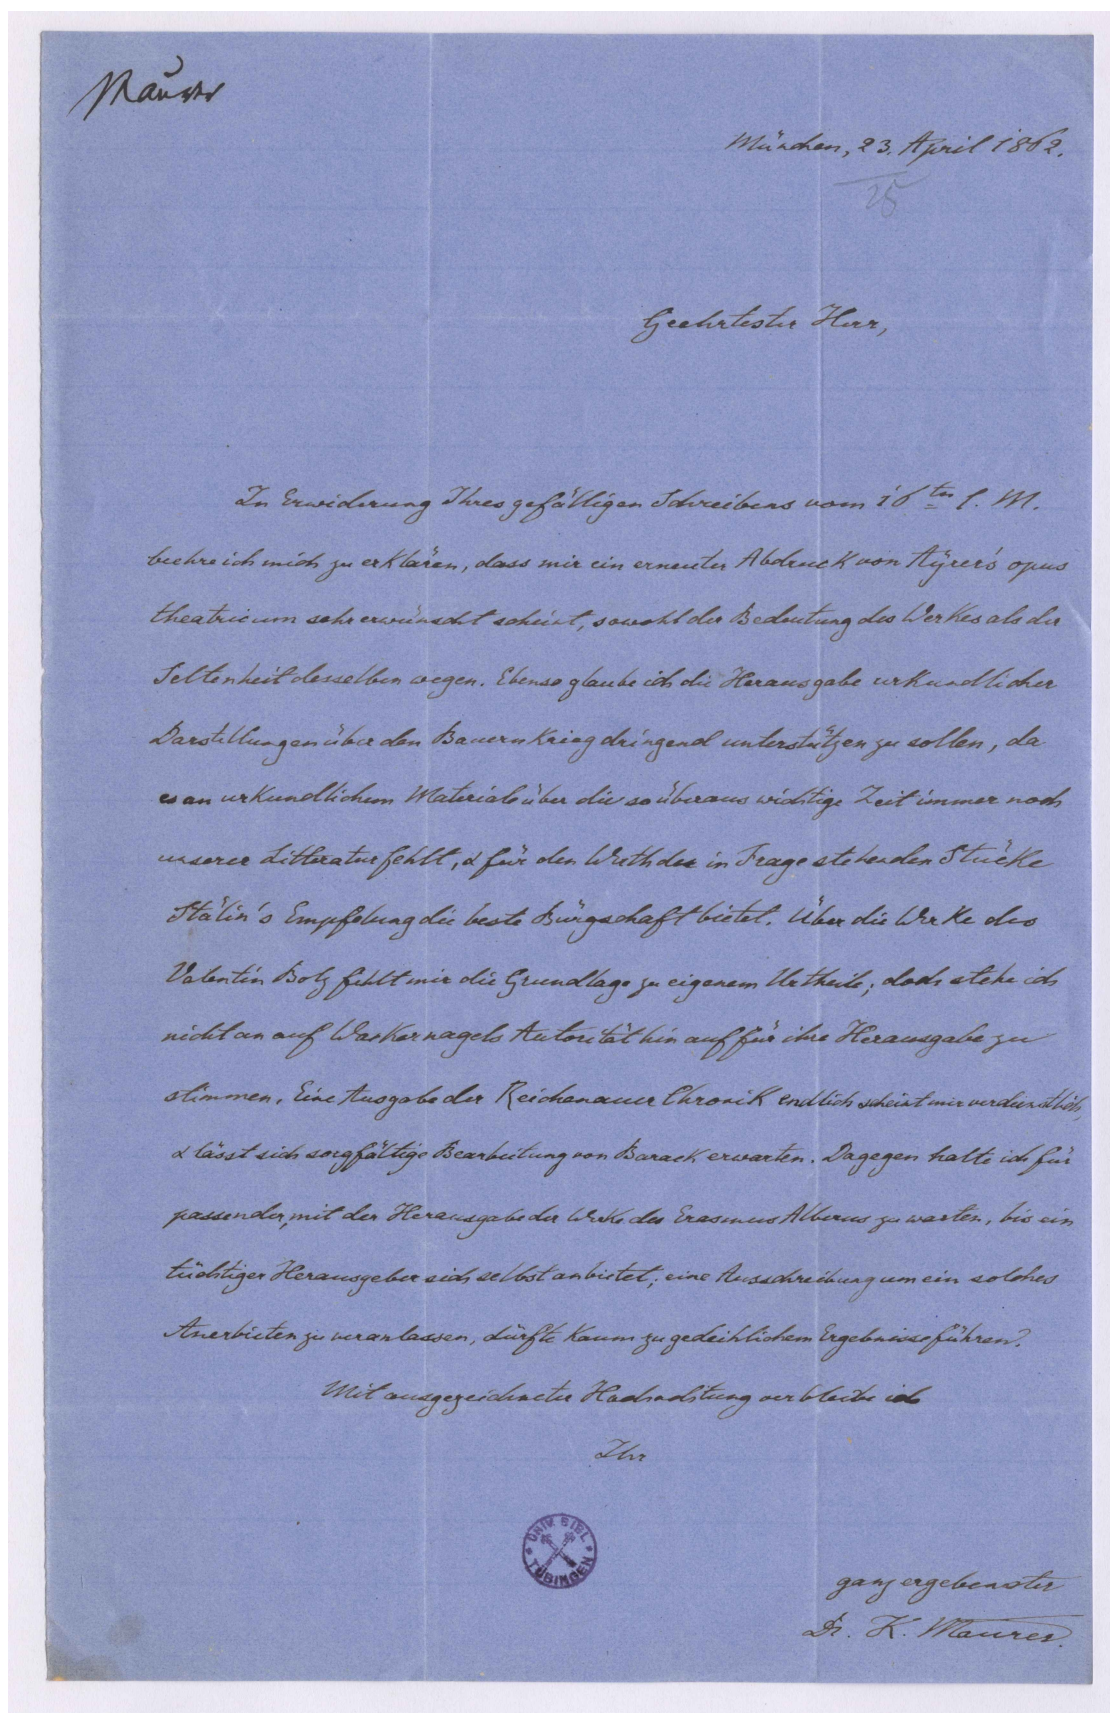 Maurer
München, 23. April 1862.
25
Geehrtester Herr,
In Erwiderung Ihres gefälligen Schreibens vom 16ten l. M.
beehre ich mich zu erklären, dass mir ein erneuter Abdruck von Aÿrer's opus
theatricum sehr erwünscht scheint, sowohl der Bedeutung des Werkes als der
Seltenheit desselben wegen. Ebenso glaube ich die Herausgabe urkundlicher
Darstellungen über den Bauernkrieg dringend unterstützen zu sollen, da
es an urkundlichem Materiale über die so überaus wichtige Zeit immer noch
unserer Litteratur fehlt, & für den Werth der in Frage stehenden Stücke
Stälin's Empfelung die beste Bürgschaft bietet. Über die Werke des
Valentin Bolz fehlt mir die Grundlage zu eigenem Urtheile; doch stehe ich
nicht an auf Wackernagels Autorität hin auf für ihre Herausgabe zu
stimmen. Eine Ausgabe der Reichenauer Chronik endlich scheint mir verdienstlich,
& lässt sich sorgfältige Bearbeitung von Barack erwarten. Dagegen halte ich für
passender, mit der Herausgabe der Werke des Erasmus Alberus zu warten, bis ein
tüchtiger Herausgeber sich selbst anbietet; eine Ausschreibung um ein solches
Anerbieten zu veranlassen, dürfte kaum zu gedeihlichem Ergebnisse führen.
Mit ausgezeichneter Hochachtung verbleibe ich
Ihr
UNIV. BIBL.
TÜBINGEN
ganz ergebenster
Dr. K. Maurer.